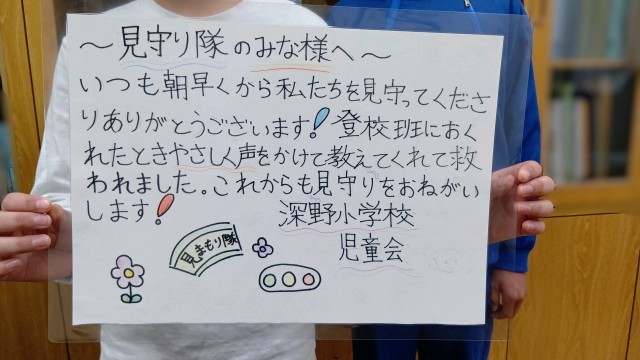 ～見守り隊のみな様へ～
いつも朝早くから私たちを見守ってくださ
りありがとうございます!登校班におく
れたときやさしく声をかけて教えてくれて救
われました。これからも見守りをおねがい
します!
深野小学校
児童会
見まもり隊